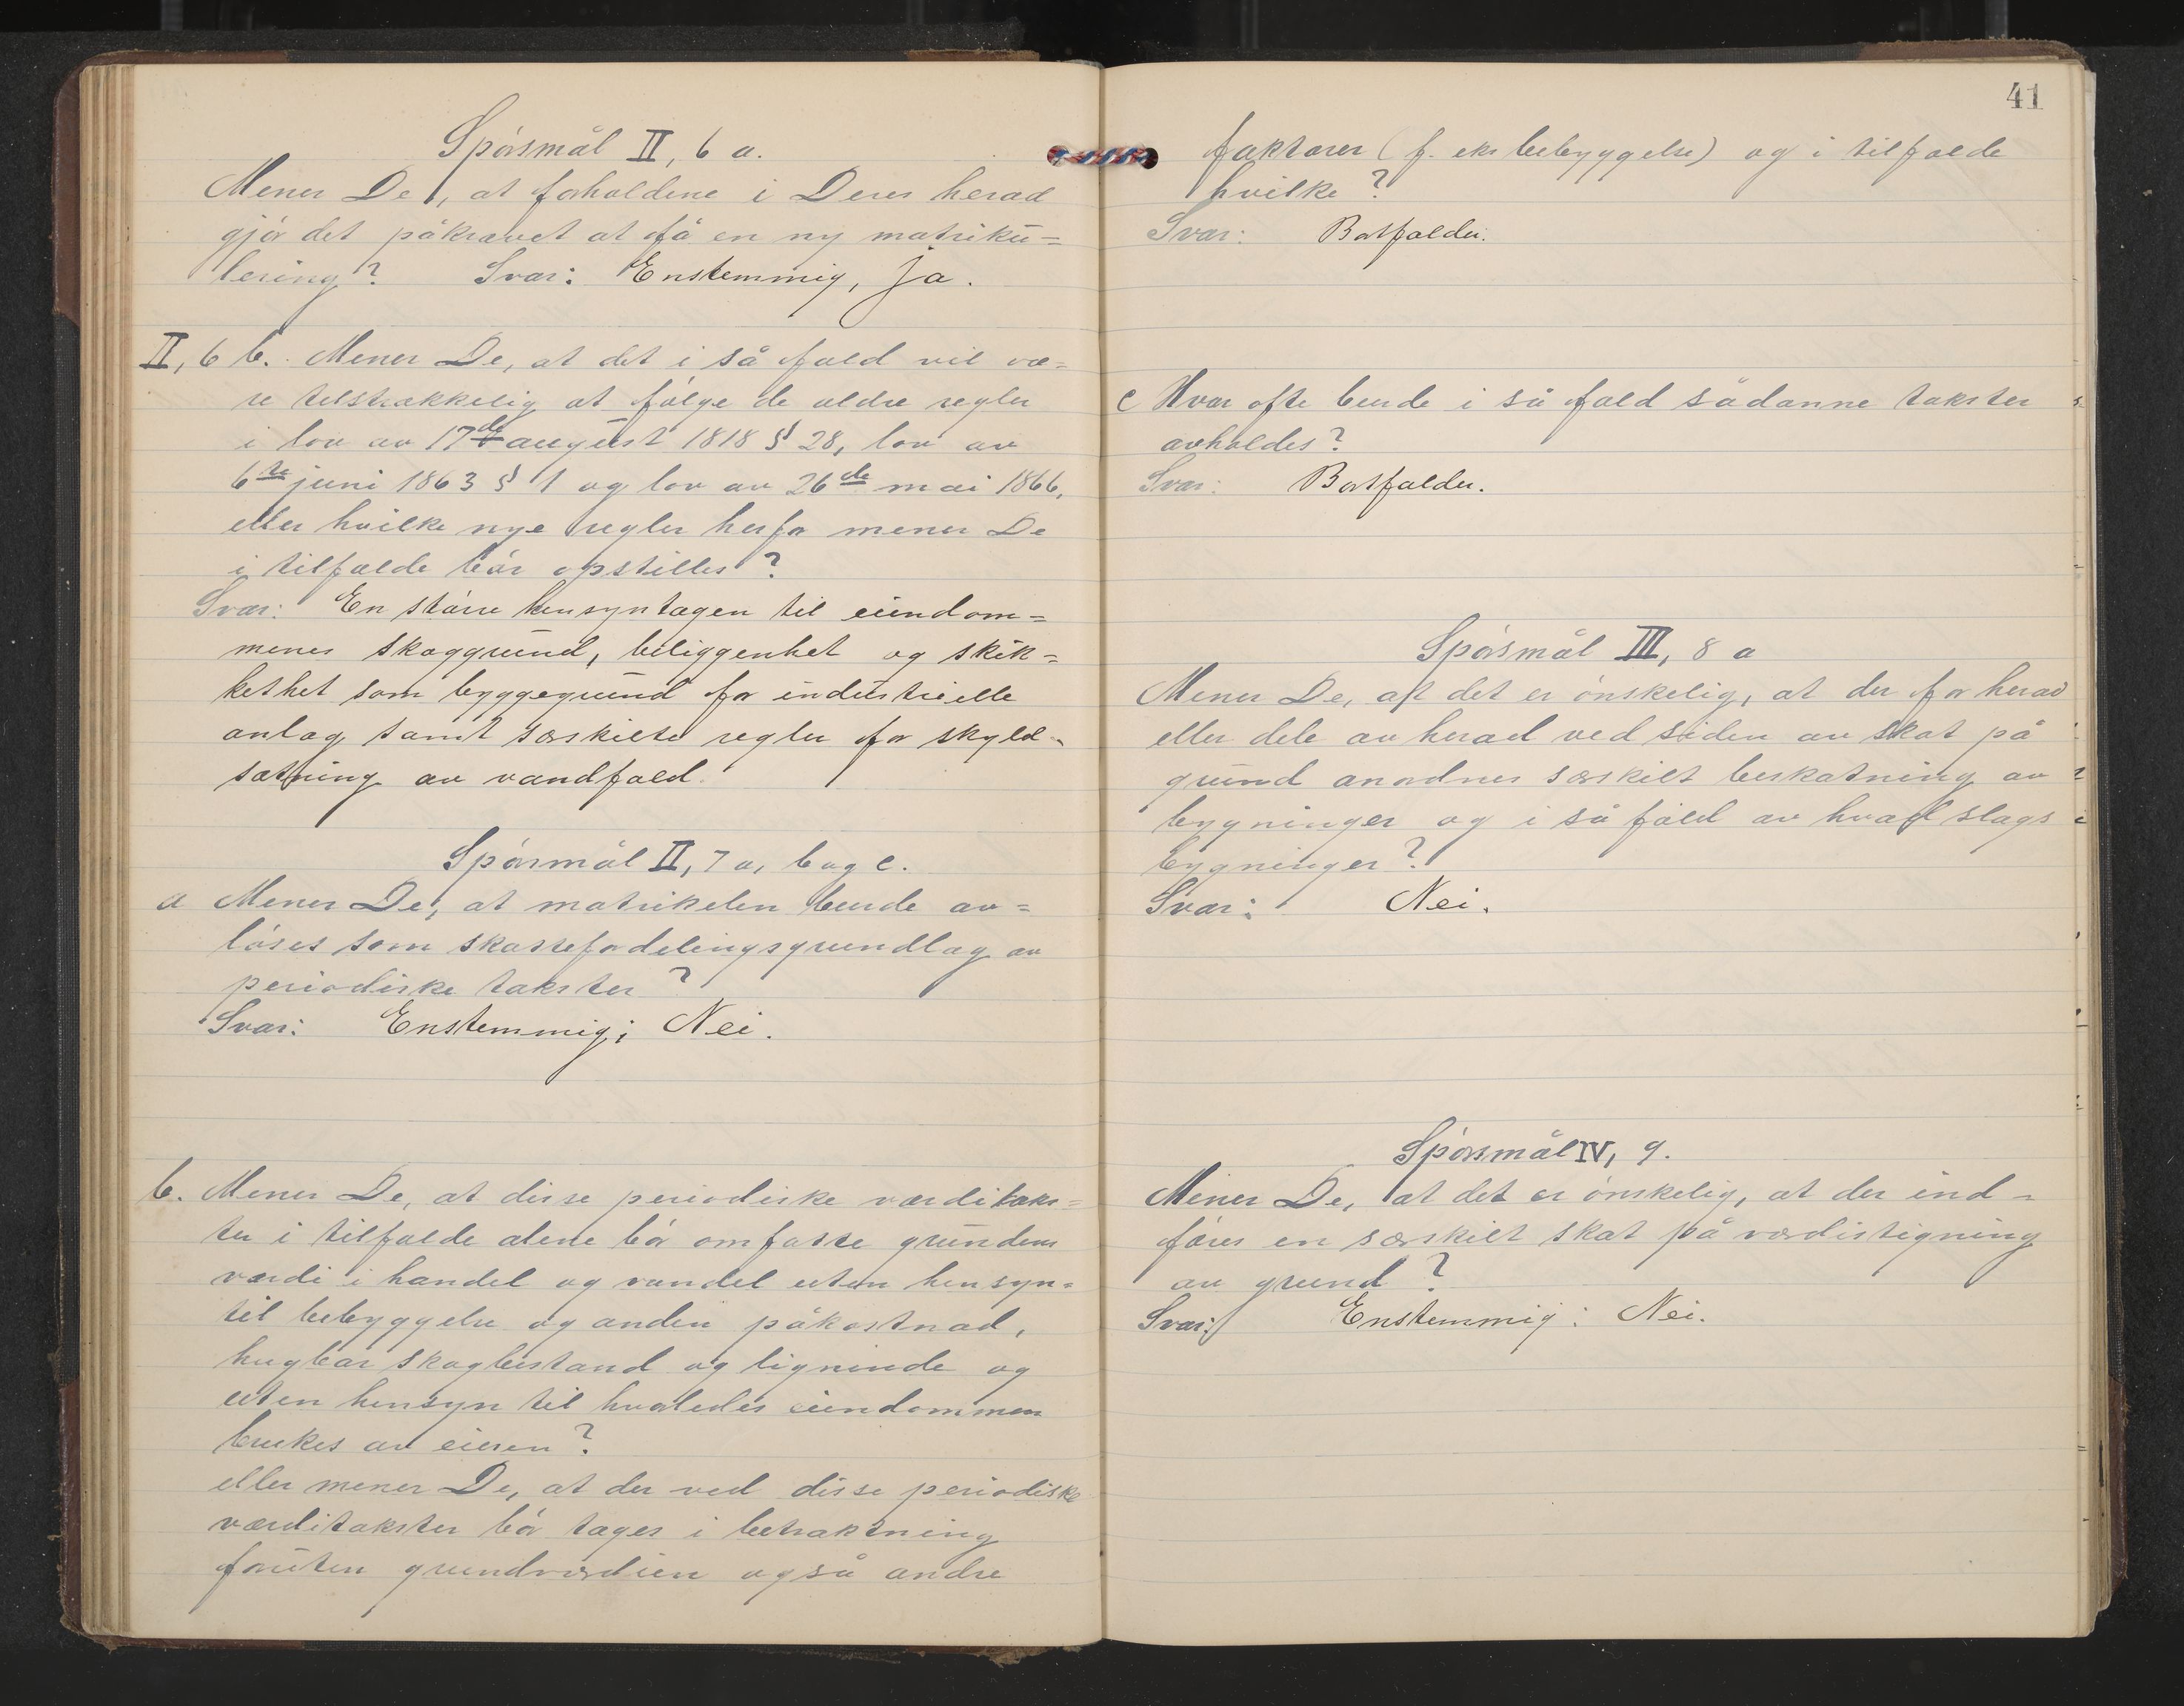 Spørsmål II, 6 a.
Mener De, at forholdene i Deres herad
gjør det påkrævet at få en ny matriku=
lering? Svar: Enstemmig, ja.
II, 6 b. Mener De, at det i så fald vil væ=
re tilstrækkelig at følge de ældre regler
i lov av 17de august 1818 § 28, lov av
6te juni 1863 § 1 og lov av 26de mai 1866,
eller hvilke nye regler herfor mener De
i tilfælde bør opstilles?
Svar: En større hensyntagen til eiendom=
menes skoggrund, beliggenhet og skik=
kethet som byggegrund for industrielle
anlæg samt særskilte regler for skyld-
sætning av vandfald.
Spørsmål II, 7 a, b og c.
a Mener De, at matrikelen burde av=
løses som skattefordelingsgrundlag av
periodiske takster?
Svar: Enstemmig; Nei.
b. Mener De, at disse periodiske værditaks=
ter i tilfælde alene bør omfatte grundens
værdi i handel og vandel uten hensyn=
til bebyggelse og anden påkostnad,
hugbar skogbestand og lignende og
uten hensyn til hvorledes eiendommen
brukes av eieren?
eller mener De, at der ved disse periodiske
værditakster bør tages i betraktning
foruten grundværdien også andre
41
faktorer (f. eks bebyggelse) og i tilfælde
hvilke?
Svar: Bortfalder.
c Hvor ofte burde i så fald sådanne takster
avholdes?
Svar: Bortfalder.
Spørsmål III, 8 a
Mener De, at det er ønskelig, at der for herad
eller dele av herad ved siden av skat på
grund anordnes særskilt beskatning av
bygninger og i så fald av hvad slags
bygninger?
Svar: Nei.
Spørsmål IV, 9.
Mener De, at det er ønskelig, at der ind=
føres en særskilt skat på værdistigning
av grund?
Svar: Enstemmig: Nei.